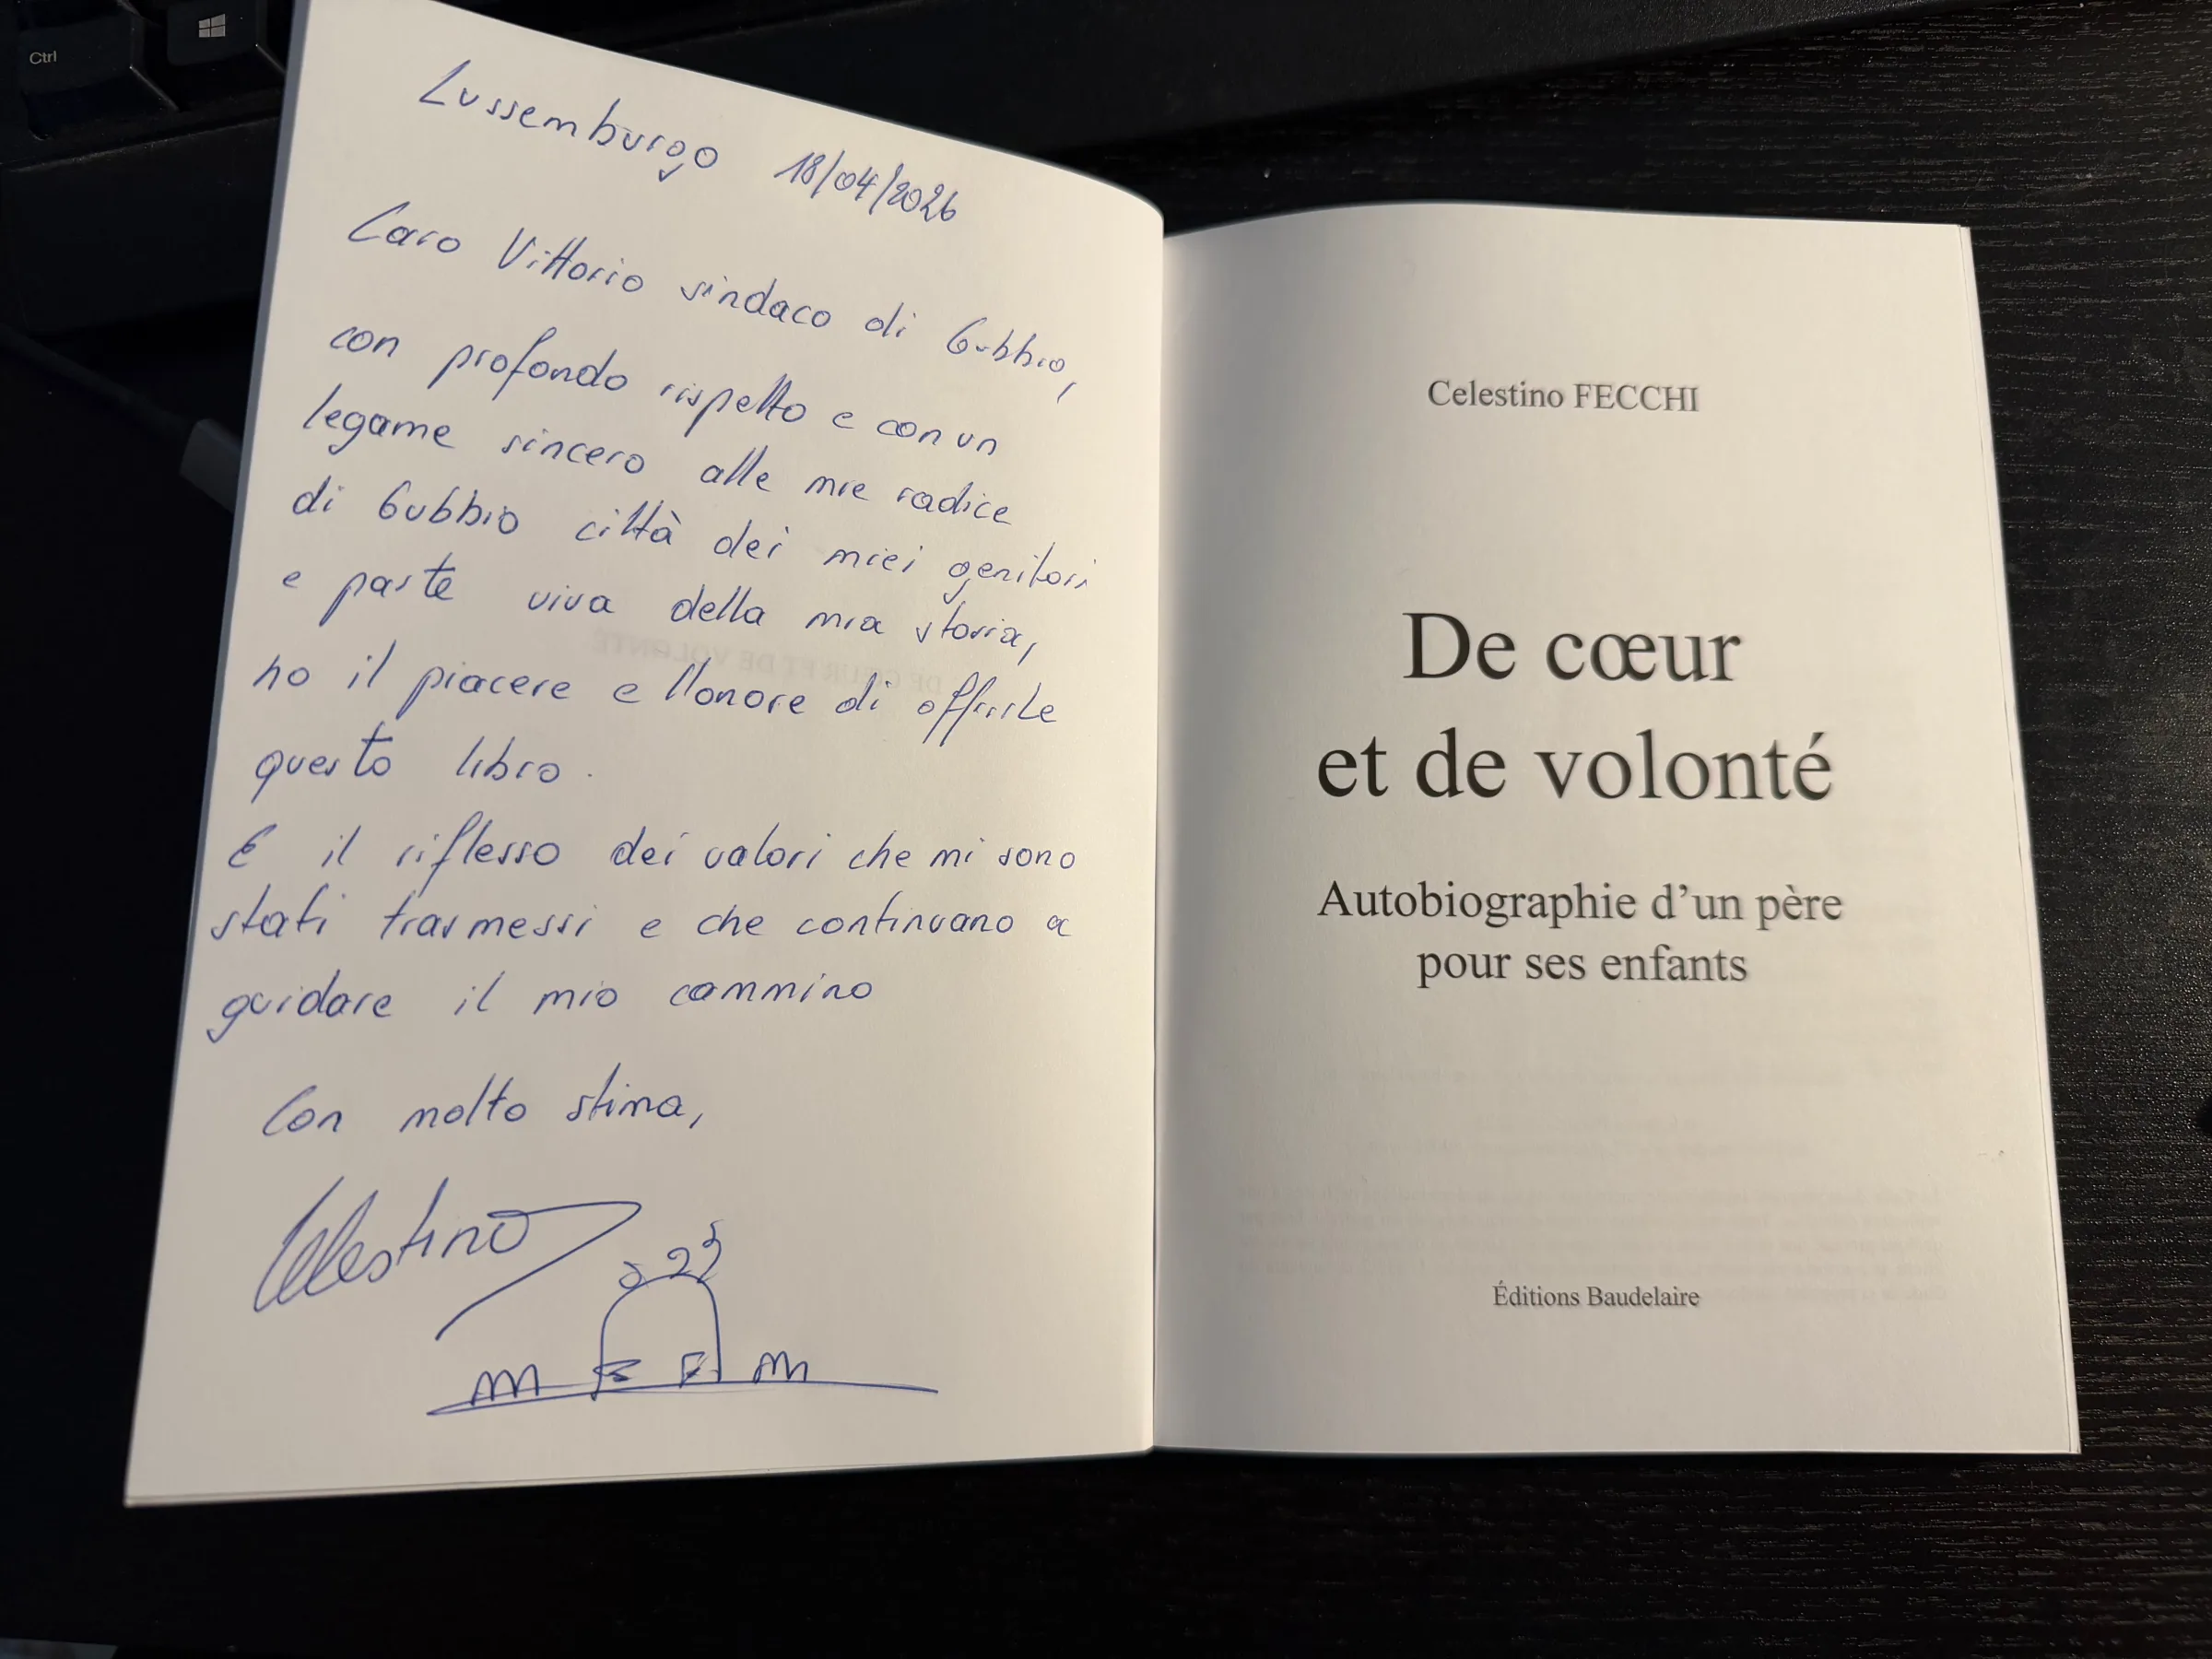 Ctrl
Lussemburgo 18/04/2026
Caro Vittorio sindaco di Gubbio,
con profondo rispetto e con un
legame sincero alle mie radice
di Gubbio città dei miei genitori
e parte viva della mia storia,
ho il piacere e l'lonore di offrirle
questo libro.
E il riflesso dei valori che mi sono
stati trasmessi e che continuano a
guidare il mio cammino
Con molto stima,
Celestino
Celestino FECCHI
De cœur
et de volonté
Autobiographie d'un père
pour ses enfants
Éditions Baudelaire